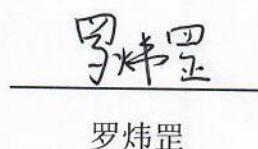 罗炜罡
罗炜罡